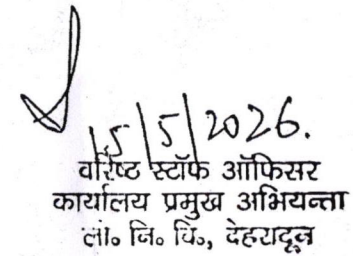 15/5/2026.
वरिष्ट स्टॉफ ऑफिसर
कार्यालय प्रमुख अभियन्ता
लो० नि० वि०, देहरादून